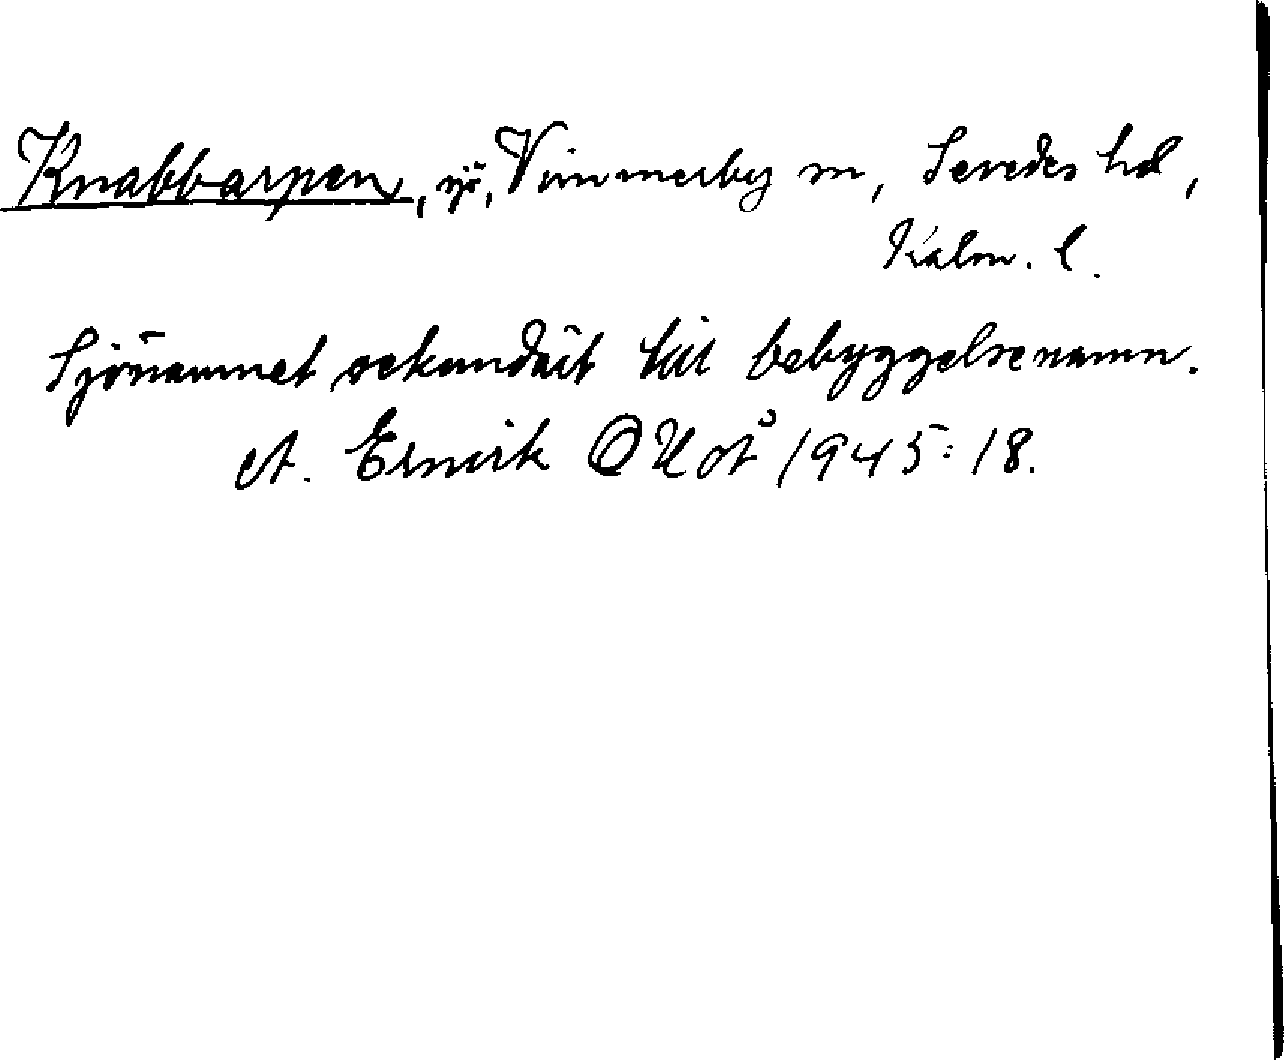 Knabbarpen, sjö, Vimmerby sn, Sevedes hd,
Kalm. l.
Sjönamnet sekundärt till bebyggelsenamn.
A. Ernvik OUoÅ 1945:18.